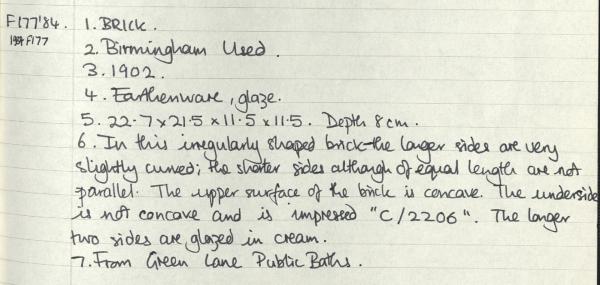 F177'84. 1. BRICK.
1984F177 2. Birmingham Used.
3. 1902.
4. Earthenware, glaze.
5. 22.7 x 21.5 x 11.5 x 11.5. Depth 8 cm.
6. In this irregularly shaped brick the larger sides are very
slightly curved; the shorter sides although of equal length are not
parallel. The upper surface of the brick is concave. The underside
is not concave and is impressed "C/2206". The longer
two sides are glazed in cream.
7. From Green Lane Public Baths.